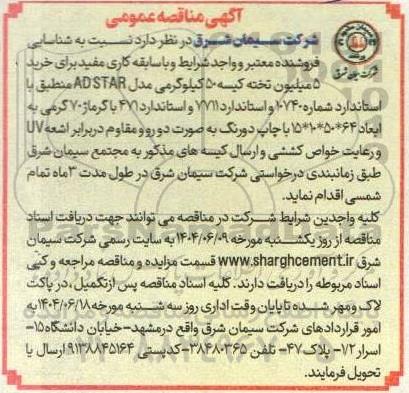 آگهی مناقصه عمومی
شرکت سیمان شرق در نظر دارد نسبت به شناسایی
فروشنده معتبر و واجد شرایط و با سابقه کاری مفید برای خرید
۵ میلیون تخته کیسه ۵۰ کیلوگرمی مدل AD STAR منطبق با
استاندارد شماره ۱۰۷۴۰ و استاندارد ۷۷۱۱ و استاندارد ۴۷۱ با گرماژ ۷۰ گرمی به
ابعاد ۶۴*۵۰*۱۰*۱۵ با چاپ دو رنگ به صورت دو رو و مقاوم در برابر اشعه UV
و رعایت خواص کششی و ارسال کیسه های مذکور به مجتمع سیمان شرق
طبق زمانبندی درخواستی شرکت سیمان شرق در طول مدت ۳ ماه تمام
شمسی اقدام نماید.
کلیه واجدین شرایط شرکت در مناقصه می توانند جهت دریافت اسناد
مناقصه از روز یکشنبه مورخه ۱۴۰۴/۰۶/۰۹ به سایت رسمی شرکت سیمان
شرق www.sharghcement.ir قسمت مزایده و مناقصه مراجعه و کپی
اسناد مربوطه را دریافت دارند. کلیه اسناد مناقصه پس از تکمیل، در پاکت
لاک و مهر شده تا پایان وقت اداری روز سه شنبه مورخه ۱۴۰۴/۰۶/۱۸ به
امور قراردادهای شرکت سیمان شرق واقع در مشهد-خیابان دانشگاه ۱۵-
اسرار ۷۲- پلاک ۴۷- تلفن ۳۸۴۸۰۳۶۵-کدپستی ۹۱۳۸۸۴۵۱۶۴ ارسال یا
تحویل فرمایند.
شرکت سیمان شرق